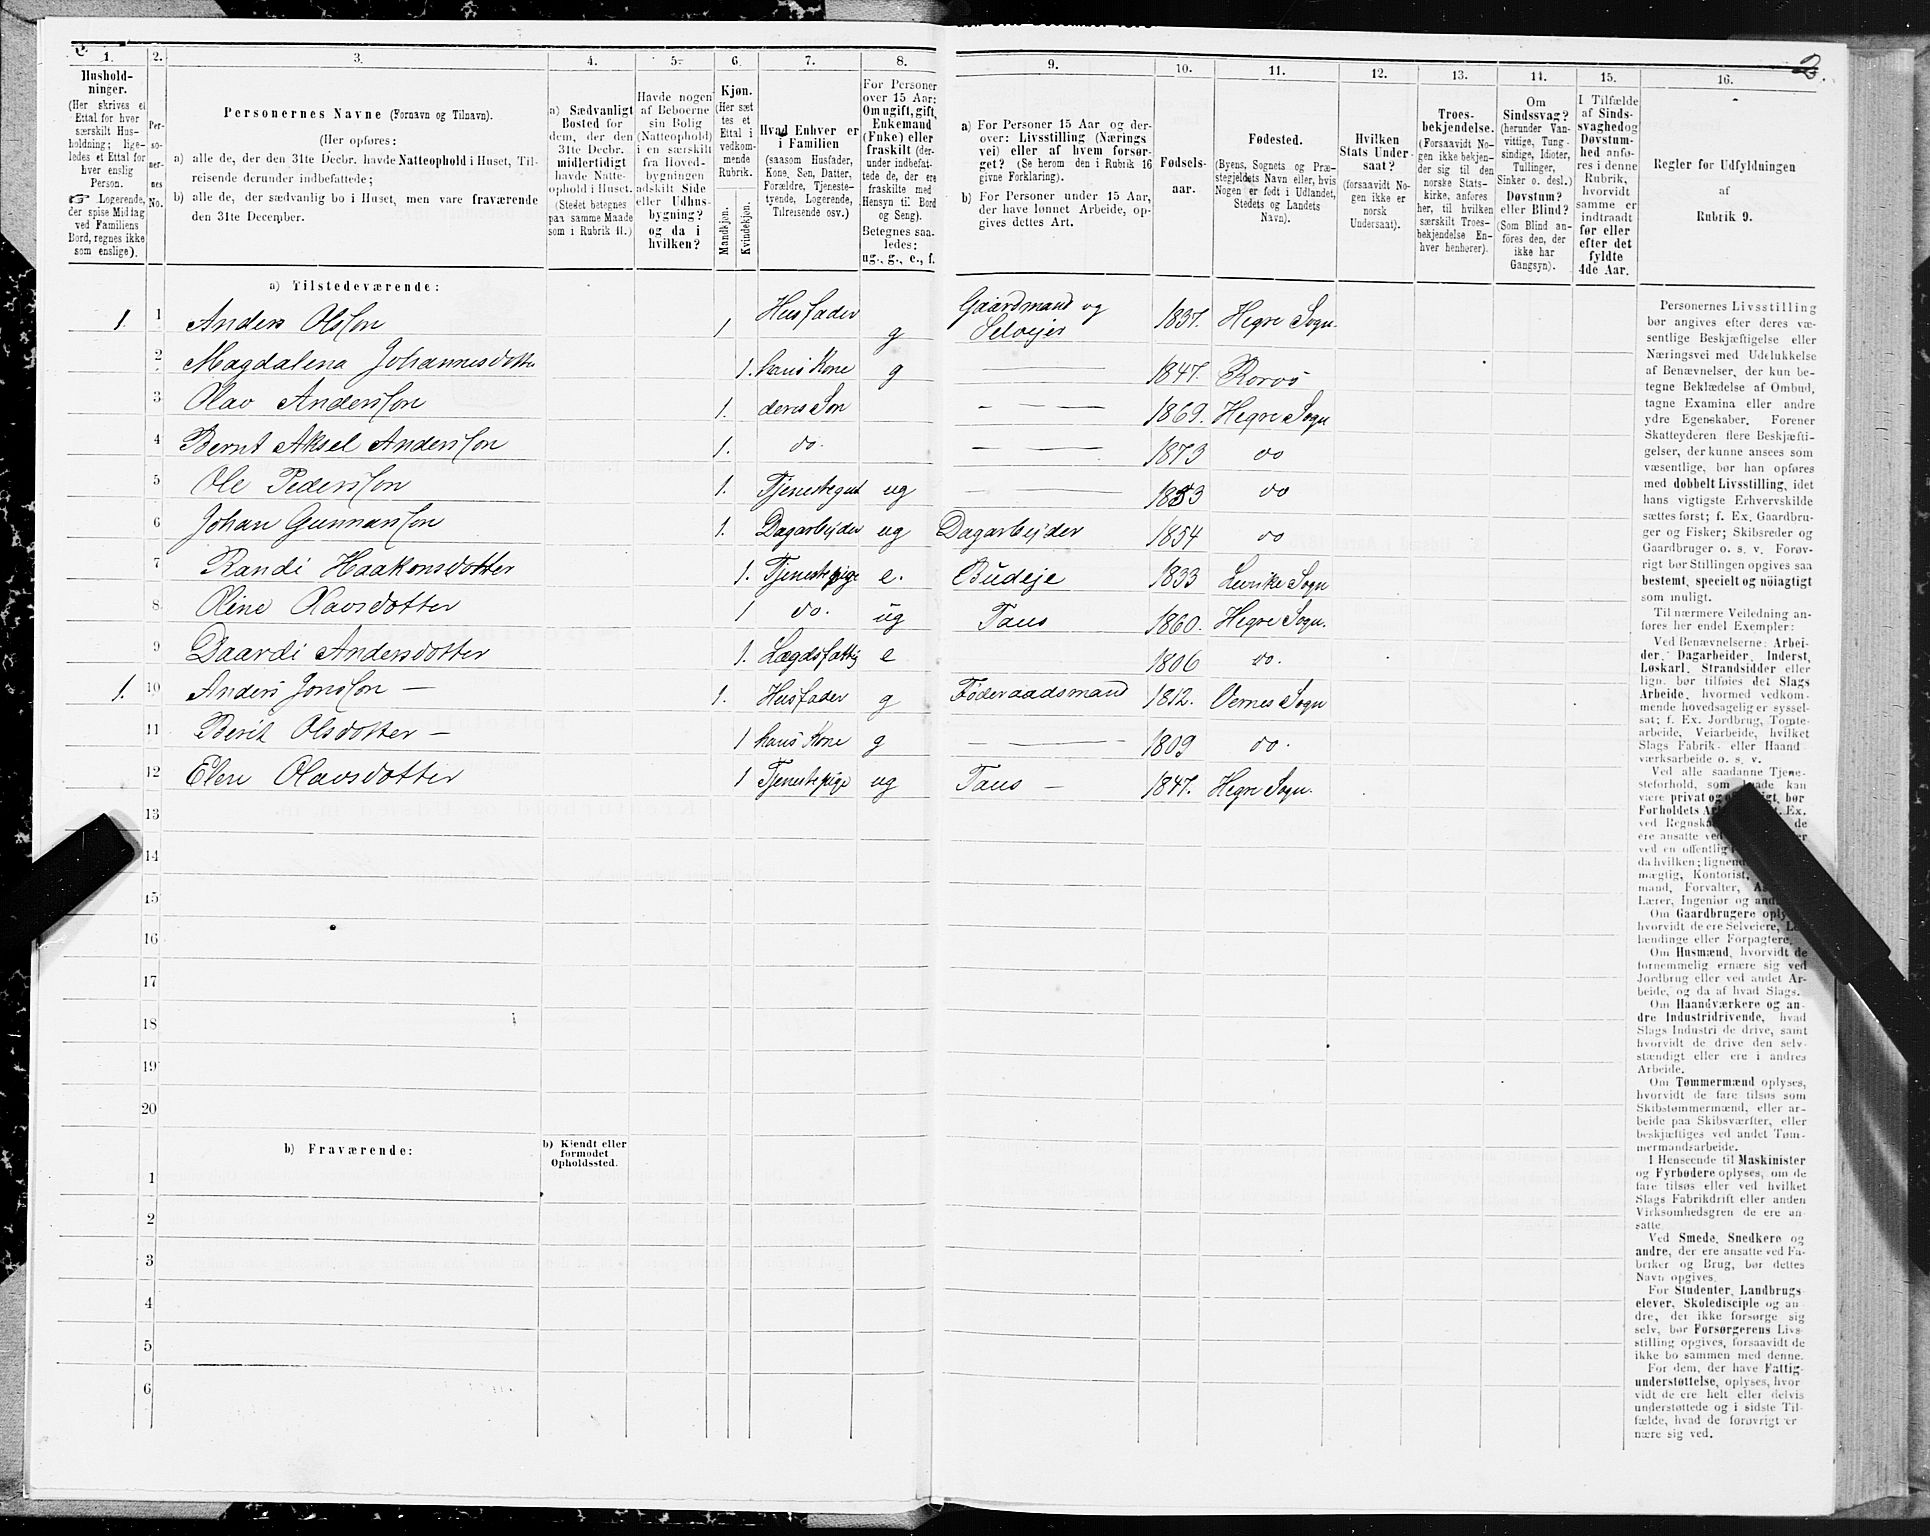 2.
1.
2.
3.
4.
5.
6.
7.
8.
9.
10.
11.
12.
13.
14.
15.
16.
Hushold-
ninger.
(Her skrives et
Ettal for hver
særskilt Hus-
holdning; lige-
ledes et Ettal for
hver enslig
Person.
☞ Logerende,
der spise Middag
ved Familiens
Bord, regnes ikke
som enslige).
Per-
so-
ner-
nes
No.
Personernes Navne (Fornavn og Tilnavn).
(Her opføres:
a) alle de, der den 31te Decbr. havde Natteophold i Huset, Til-
reisende derunder indbefattede;
b) alle de, der sædvanlig bo i Huset, men vare fraværende
den 31te December.
a) Sædvanligt
Bosted for
dem, der den
31te Decbr.
midlertidigt
havde Natte-
ophold i Huset.
(Stedet betegnes
paa samme Maade
som i Rubrik 11.)
Havde nogen
af Beboerne
sin Bolig
(Natteophold)
i en særskilt
fra Hoved-
bygningen
adskilt Side
eller Udhus-
bygning?
og da i
hvilken?
Kjøn.
(Her sæt
tes et
Ettal i
vedkom-
mende
Rubrik.
Mandkjøn.
Kvindekjøn.
Hvad Enhver er
i Familien
(saasom Husfader,
Kone, Søn, Datter,
Forældre, Tjeneste-
tyende, Logerende,
Tilreisende osv.)
For Personer
over 15 Aar:
Om ugift, gift,
Enkemand
(Enke) eller
fraskilt (der-
under indbefat-
tede de, der ere
fraskilte med
Hensyn til Bord
og Seng).
Betegnes saa-
ledes:
ug., g., e., f.
a) For Personer 15 Aar og der-
over: Livsstilling (Nærings
vei) eller af hvem forsør-
get? (Se herom den i Rubrik 16
givne Forklaring).
b) For Personer under 15 Aar,
der have lønnet Arbeide, op-
gives dettes Art.
Fødsels-
aar.
Fødested.
(Byens, Sognets og Præ-
stegjeldets Navn eller, hvis
Nogen er født i Udlandet,
Stedets og Landets
Navn).
Hvilken
Stats Under
saat?
(forsaavidt No-
gen ikke er
norsk
Undersaat).
Troes-
bekjendelse.
(Forsaavidt No-
gen ikke bekjen-
der sig til den
norske Stats-
kirke, anføres
her, til hvilken
særskilt Troes-
bekjendelse En-
hver henhører).
Om
Sindssvag?
(herunder Van-
vittige, Tung-
sindige, Idioter,
Tullinger,
Sinker o. desl.)
Døvstum?
eller Blind?
(Som Blind an-
føres den, der
ikke har
Gangsyn).
I Tilfælde
af Sinds-
svaghed og
Døvstum-
hed anfø-
res i denne
Rubrik,
hvorvidt
samme er
indtraadt
før eller
efter det
fyldte
4de Aar.
Regler for Udfyldningen
af
Rubrik 9.
a) Tilstedeværende:
1. 1 Anders Olsson 1 Husfader g Gaardmand og Selveier 1837. Hegre Sogn.
2 Magdalena Johannesdotter 1. hans Kone g — 1847. Rorvos
3 Olav Andersson 1. deres Søn — 1869. Hegre Sogn
4 Bernt Aksel Andersson 1. do. — 1873 do
5 Ole Pedersson 1. Tjenestegut ug — 1853 do
6 Johan Gunnarsson 1. Dagarbejder ug Dagarbejder 1854 do
7 Randi Haakonsdotter 1. Tjenestepige e. Budeje 1833 Levike Sogn
8 Oline Olavsdotter 1 do. ug Taus 1860. Hegre Sogn.
9 Daardi Andersdotter 1. Lægdsfattig e 1806 do.
1. 10 Anders Jonsson — 1. Husfader g Føderaadsmand 1812. Vernes Sogn
11 Berit Olsdotter — 1 hans Kone g — 1809 do.
12 Elen Olavsdotter 1 Tjenestepige ug Taus — 1847. Hegre Sogn.
13
14
15
16
17
18
19
20
b) Fraværende:
b) Kjendt eller
formodet
Opholdssted.
1
2
3
4
5
6
Personernes Livsstilling
bør angives efter deres væ-
sentlige Beskjæftigelse eller
Næringsvei med Udelukkelse
af Benævnelser, der kun be-
tegne Beklædelse af Ombud,
tagne Examina eller andre
ydre Egenskaber. Forener
Skatteyderen flere Beskjæfti-
gelser, der kunne ansees som
væsentlige, bør han opføres
med dobbelt Livsstilling, idet
hans vigtigste Erhvervskilde
sættes først; f. Ex. Gaardbru-
ger og Fisker; Skibsreder og
Gaardbruger o. s. v. Forøv-
rigt bør Stillingen opgives saa
bestemt, specielt og nöiagtigt
som muligt.
Til nærmere Veiledning an-
føres her endel Exempler:
Ved Benævnelserne: Arbei-
der, Dagarbeider, Inderst,
Løskarl, Strandsidder eller
lign. bør tilføies det Slags
Arbeide, hvormed vedkom-
mende hovedsagelig er syssel-
sat; f. Ex. Jordbrug, Tomte-
arbeide, Veiarbeide, hvilket
Slags Fabrik- eller Haand-
værksarbeide o. s. v.
Ved alle saadanne Tjene-
steforhold, som kan
være privat og bør
Forholdets Ex.
ved de
ere ansatte ved
ved en offentlig
da hvilken;
mægtig, Kontorist,
mand, Forvalter,
Lærer, Ingeniør og
Om Gaardbrugere
hvorvidt de ere Selveiere,
lændinge eller Forpagtere.
Om Husmænd, hvorvidt de
fornemmelig ernære sig ved
Jordbrug eller ved andet Ar-
beide, og da af hvad Slags.
Om Haandværkere og an-
dre Industridrivende, hvad
Slags Industri de drive, samt
hvorvidt de drive den selv-
stændigt eller ere i andres
Arbeide.
Om Tømmermænd oplyses,
hvorvidt de fare tilsøs som
Skibstømmermænd, eller ar-
beide paa Skibsværfter, eller
beskjæftiges ved andet Tøm-
mermandsarbeide.
I Henseende til Maskinister
og Fyrbødere oplyses, om de
fare tilsøs eller ved hvilket
Slags Fabrikdrift eller anden
Virksomhedsgren de ere an-
satte.
Ved Smede, Snedkere og
andre, der ere ansatte ved Fa-
briker og Brug, bør dettes
Navn opgives.
For Studenter, Landbrugs-
elever, Skoledisciple og an-
dre, der ikke forsørge sig
selv, bør Forsørgerens Livs-
stilling opgives, forsaavidt de
ikke bo sammen med denne.
For dem, der have Fattig-
understøttelse, oplyses, hvor
vidt de ere helt eller delvis
understøttede og i sidste Til-
fælde, hvad de forøvrigt er
nære sig ved.